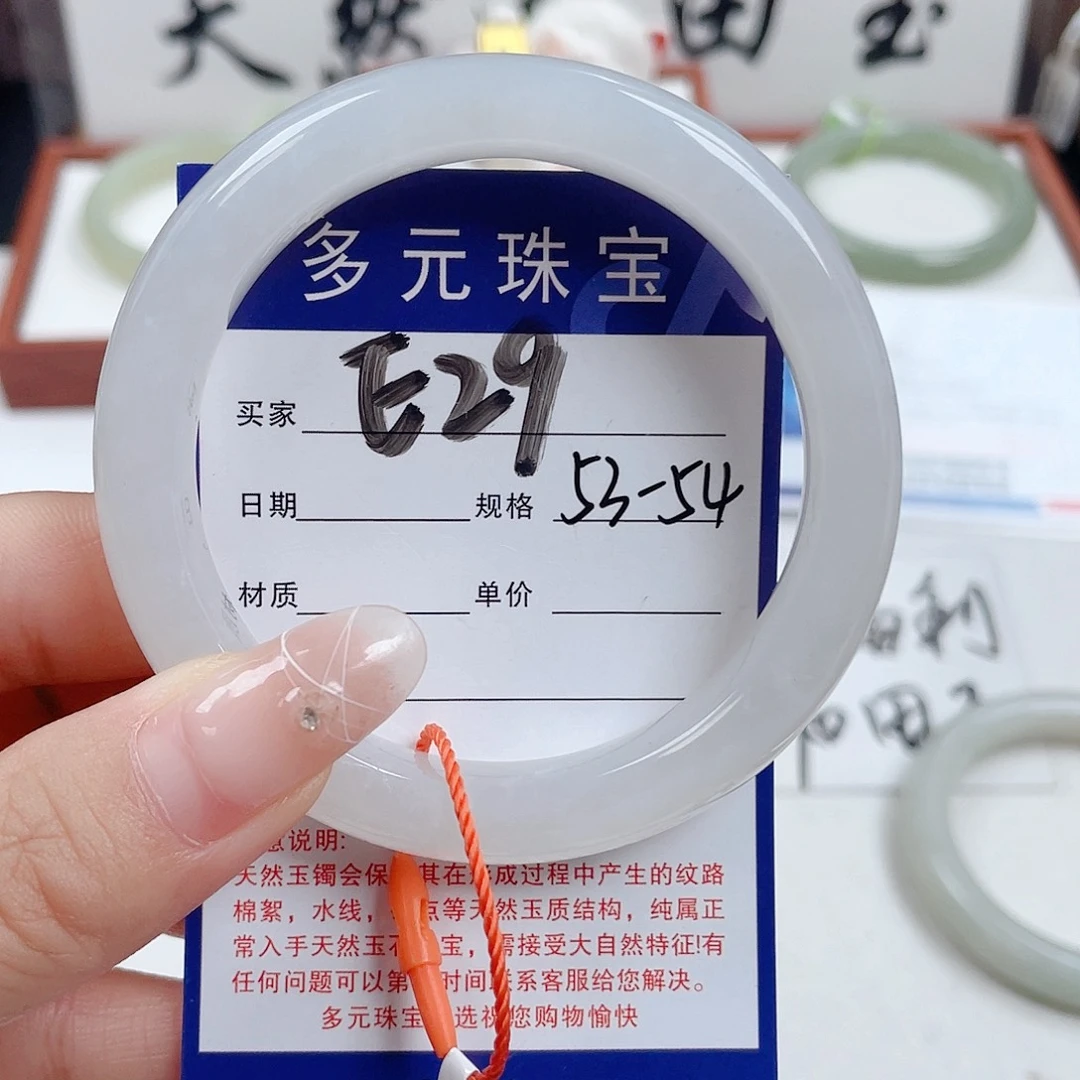 天然 田玉
多元珠宝
买家 E29
日期 规格 53-54
材质 单价
说明:
天然玉镯会保 其在形成过程中产生的纹路
棉絮，水线， 点等天然玉质结构，纯属正
常入手天然玉石 宝，需接受大自然特征!有
任何问题可以第 时间联系客服给您解决。
多元珠宝 选祝您购物愉快
利
和田